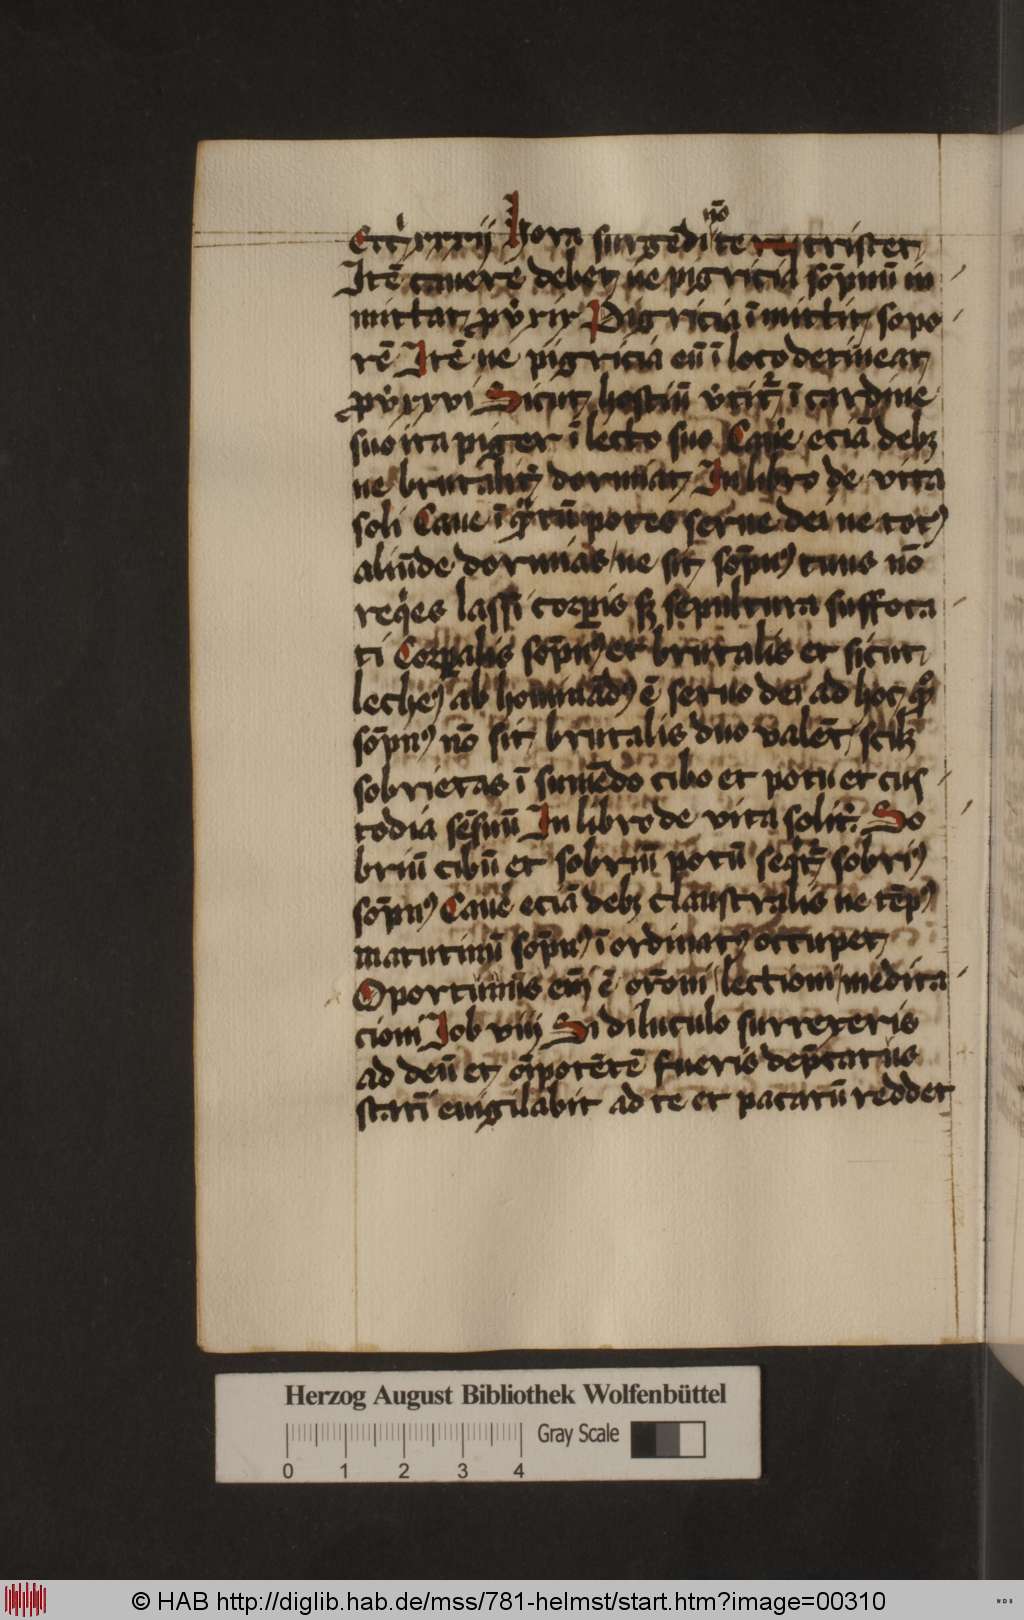 Eccͥ xxxij Hora surgēdi nō te tristet
Itē cauere debet ne pigricia sōpnū in
mittat prou̇ xix Pigricia īmittit sopo
rē Itē ne pigricia eū ī loco detineat
prou̇ xxvi Sicut hostiū u̇titᷣ ī cardine
suo ita piger ī lecto suo Cauē eciā debꝫ
ne brutalitᷣ dormiat In libro de vita
soli Caue ī qᷓtū potes serue dei ne totꝰ
aliūde dormias ne sit sōpnꝰ tuus nō
reqͥes lassi corꝑis sꝫ sepultura suffoca
ti Corꝑalis sōpnꝰ et brutalis et sicut
lecheꝰ ab homīadꝰ ē seruo dei ad hoc qᷓ
sōpnꝰ nō sit brutalis duo valēt scilꝫ
sobrietas ī sumēdo cibo et potu et cus
todia sēsuū In libro de vita solitᷣ. So
briū cibū et sobriū potū seqͥtᷣ sobriꝰ
sōpnꝰ Cauē eciā debꝫ claustralis ne tēpꝰ
matutinū sōpnꝰ īordinatꝰ occupet
Oportunius em̄ ē orōni lectioni medita
cioni Job viij Si diluculo surrexeris
ad deū et oīpotētē fueris dep̄catus
statī euigilabit ad te et pacatū reddet
Herzog August Bibliothek Wolfenbüttel
Gray Scale
0 1 2 3 4
© HAB http://diglib.hab.de/mss/781-helmst/start.htm?image=00310